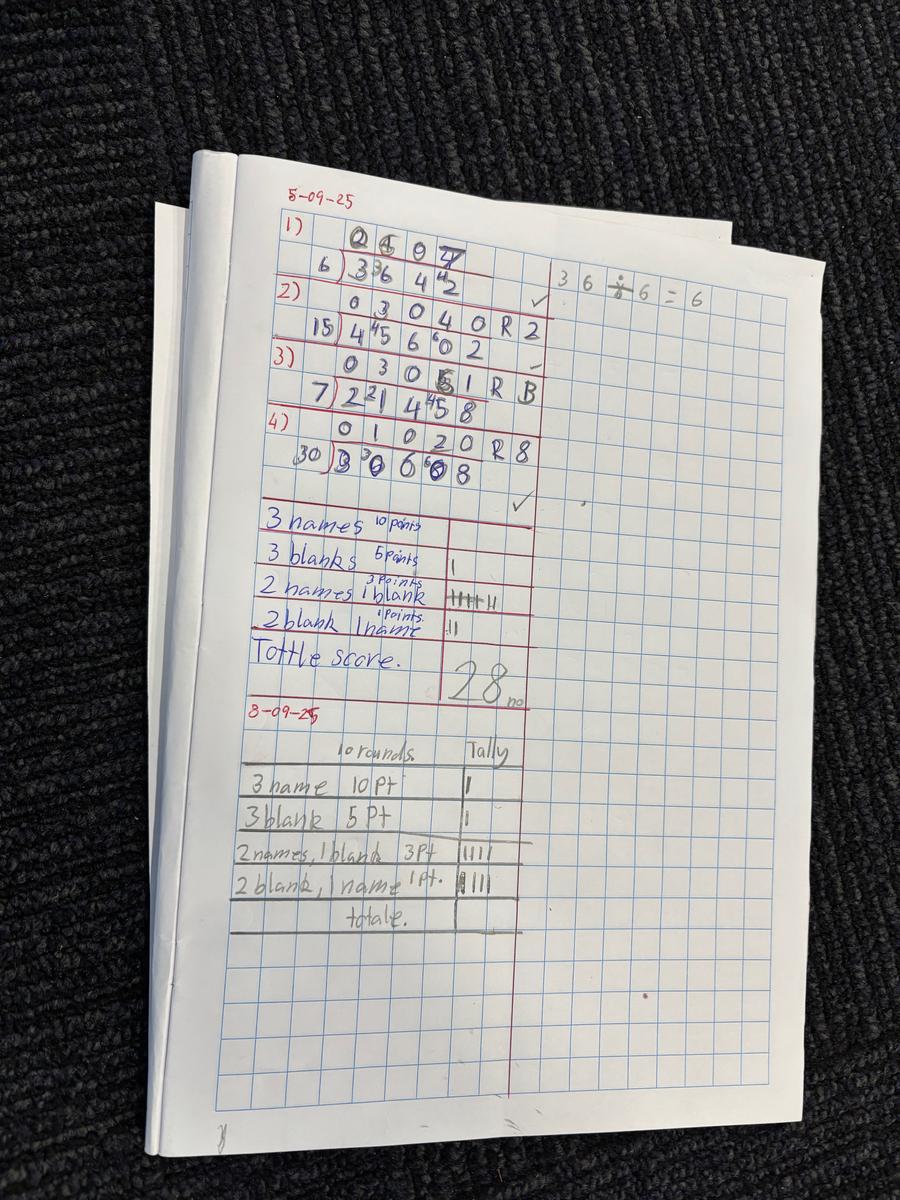 5-09-25
1)
0 6 0 7
6 ) 3 36 4 42
36 ÷ 6 = 6
2)
0 3 0 4 0 R 2
15 ) 4 45 6 60 2
3)
0 3 0 6 1 R B
7 ) 2 21 4 45 8
4)
0 1 0 2 0 R 8
30 ) 3 30 6 60 8
3 names 10 points
3 blanks 5 points
2 names 1 blank 3 points
2 blank 1 name 1 points.
Tottle score. 28 no
8-09-25
10 rounds. Tally
3 name 10 Pt
3 blank 5 Pt
2 names, 1 blank 3 Pt
2 blank, 1 name 1 Pt.
totale.